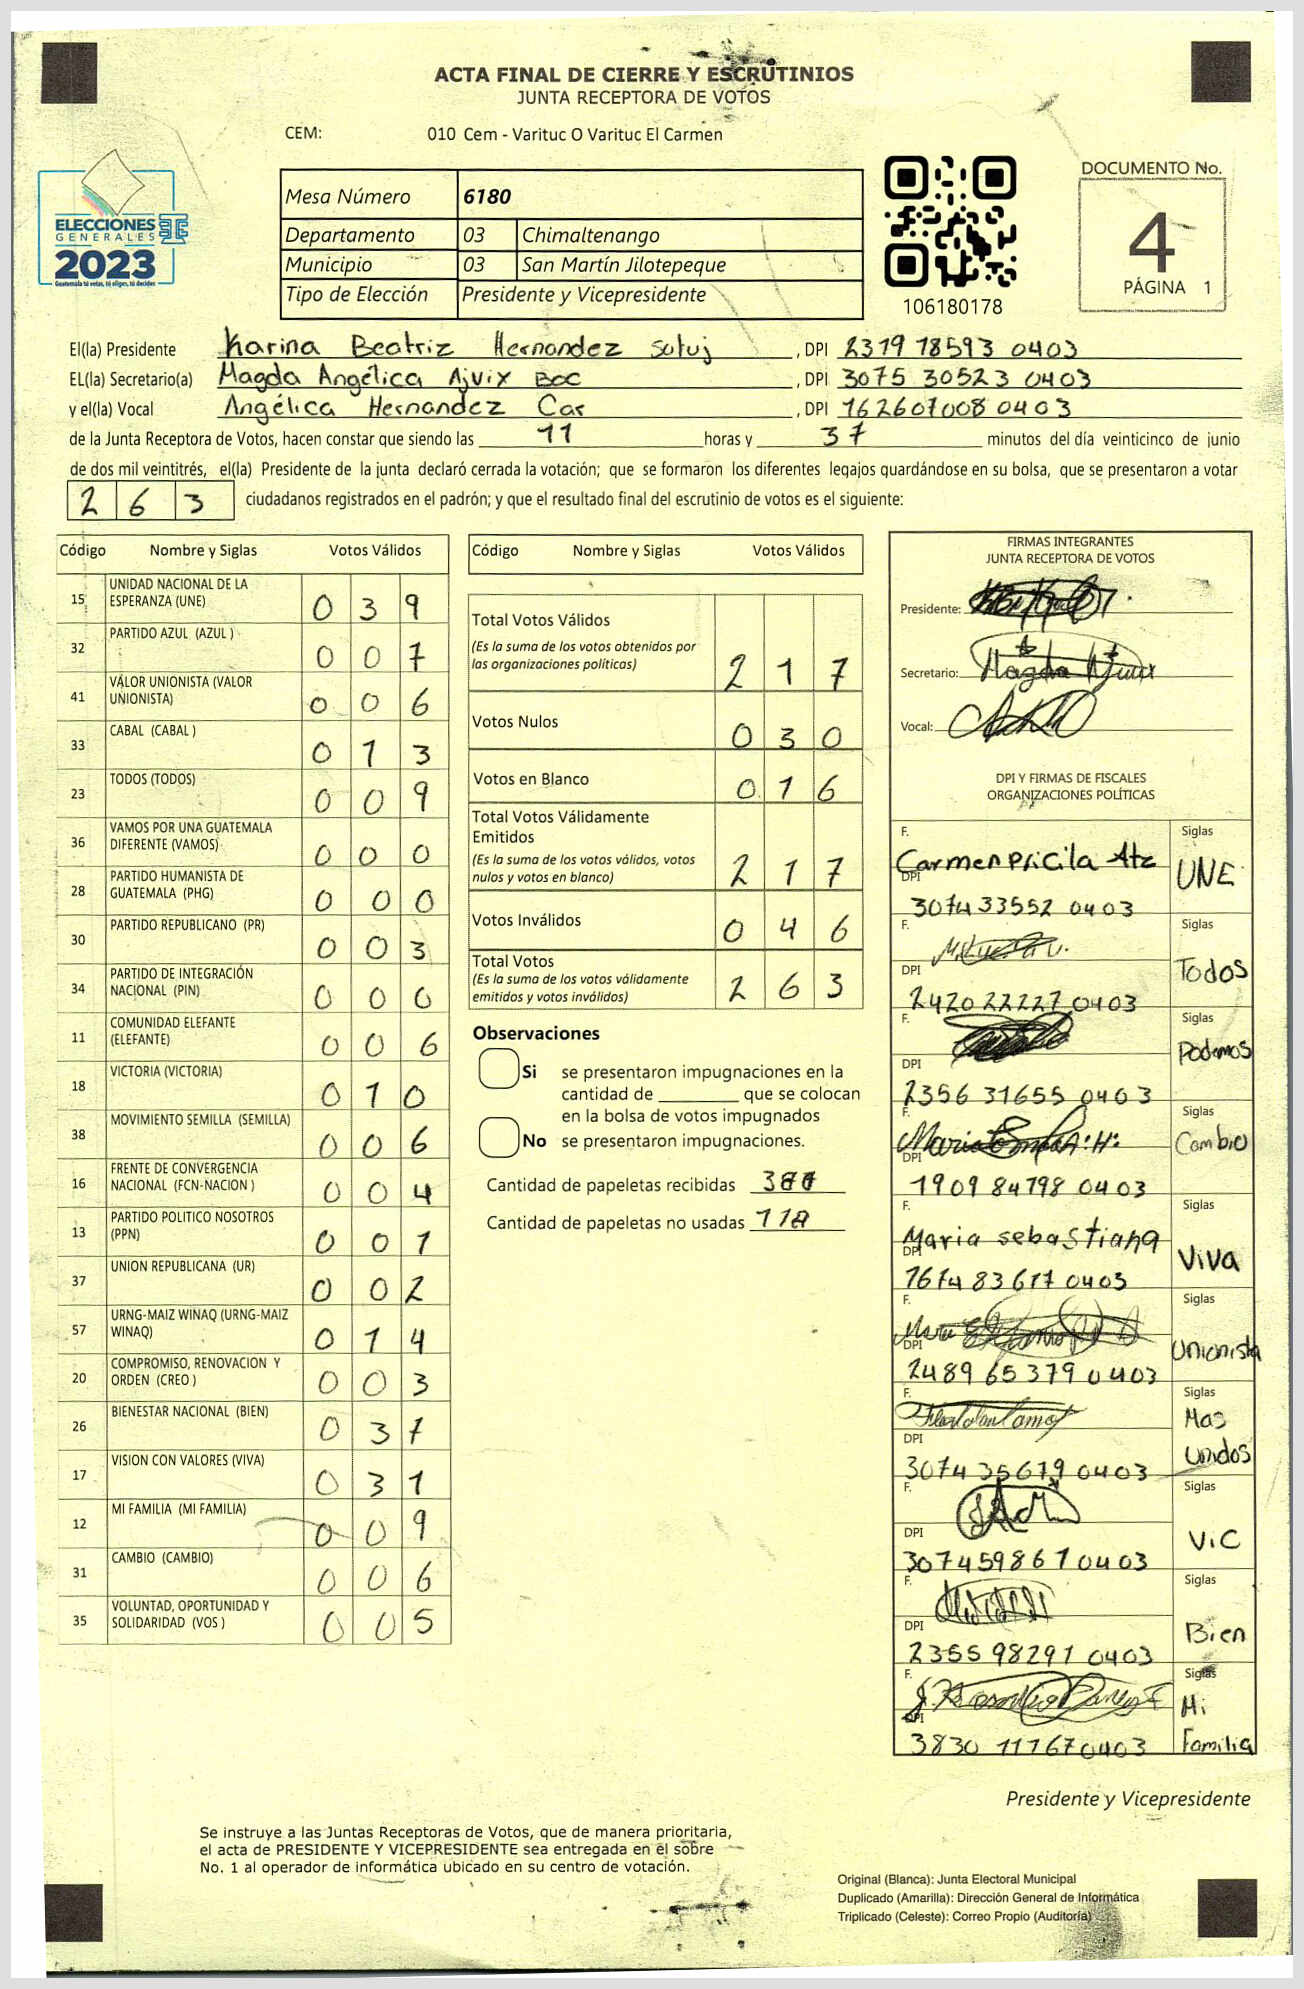 ACTA FINAL DE CIERRE Y ESCRUTINIOS
JUNTA RECEPTORA DE VOTOS
CEM: 010 Cem - Varituc O Varituc El Carmen
ELECCIONES
GENERALES
2023
Guatemala tú votas, tú eliges, tú decides
Mesa Número 6180
Departamento 03 Chimaltenango
Municipio 03 San Martín Jilotepeque
Tipo de Elección Presidente y Vicepresidente
106180178
DOCUMENTO No.
4
PÁGINA 1
El(la) Presidente Karina Beatriz Hernandez Sutuj, DPI 2319 18593 0403
EL(la) Secretario(a) Magda Angélica Ajvix Boc, DPI 3075 30523 0403
y el(la) Vocal Angélica Hernandez Car, DPI 162607008 0403
de la Junta Receptora de Votos, hacen constar que siendo las 11 horas y 37 minutos del día veinticinco de junio
de dos mil veintitrés, el(la) Presidente de la junta declaró cerrada la votación; que se formaron los diferentes legajos guardándose en su bolsa, que se presentaron a votar
263 ciudadanos registrados en el padrón; y que el resultado final del escrutinio de votos es el siguiente:
Código Nombre y Siglas Votos Válidos
15 UNIDAD NACIONAL DE LA ESPERANZA (UNE) 0 3 9
32 PARTIDO AZUL (AZUL ) 0 0 7
41 VALOR UNIONISTA (VALOR UNIONISTA) 0 0 6
33 CABAL (CABAL ) 0 1 3
23 TODOS (TODOS) 0 0 9
36 VAMOS POR UNA GUATEMALA DIFERENTE (VAMOS) 0 0 0
28 PARTIDO HUMANISTA DE GUATEMALA (PHG) 0 0 0
30 PARTIDO REPUBLICANO (PR) 0 0 3
34 PARTIDO DE INTEGRACIÓN NACIONAL (PIN) 0 0 0
11 COMUNIDAD ELEFANTE (ELEFANTE) 0 0 6
18 VICTORIA (VICTORIA) 0 1 0
38 MOVIMIENTO SEMILLA (SEMILLA) 0 0 6
16 FRENTE DE CONVERGENCIA NACIONAL (FCN-NACION ) 0 0 4
13 PARTIDO POLITICO NOSOTROS (PPN) 0 0 1
37 UNION REPUBLICANA (UR) 0 0 2
57 URNG-MAIZ WINAQ (URNG-MAIZ WINAQ) 0 1 4
20 COMPROMISO, RENOVACION Y ORDEN (CREO ) 0 0 3
26 BIENESTAR NACIONAL (BIEN) 0 3 7
17 VISION CON VALORES (VIVA) 0 3 1
12 MI FAMILIA (MI FAMILIA) 0 0 9
31 CAMBIO (CAMBIO) 0 0 6
35 VOLUNTAD, OPORTUNIDAD Y SOLIDARIDAD (VOS ) 0 0 5
Código Nombre y Siglas Votos Válidos
Total Votos Válidos 2 1 7
(Es la suma de los votos obtenidos por
las organizaciones políticas)
Votos Nulos 0 3 0
Votos en Blanco 0 1 6
Total Votos Válidamente
Emitidos 2 1 7
(Es la suma de los votos válidos, votos
nulos y votos en blanco)
Votos Inválidos 0 4 6
Total Votos 2 6 3
(Es la suma de los votos válidamente
emitidos y votos inválidos)
Observaciones
Si se presentaron impugnaciones en la
cantidad de ________ que se colocan
en la bolsa de votos impugnados
No se presentaron impugnaciones.
Cantidad de papeletas recibidas
Cantidad de papeletas no usadas
FIRMAS INTEGRANTES
JUNTA RECEPTORA DE VOTOS
Presidente:
Secretario: Magda Ajvix
Vocal:
DPI Y FIRMAS DE FISCALES
ORGANIZACIONES POLÍTICAS
F. Siglas
Carmen Pricila Atz UNE
DPI
3074 33552 0403
F. Siglas
Todos
DPI
2420 22227 0403
F. Siglas
Podemos
DPI
2356 31655 0403
F. Siglas
Cambio
DPI
1909 84798 0403
F. Siglas
Maria sebastiana Viva
DPI
1674 83617 0403
F. Siglas
Unionista
DPI
2489 65379 0403
F. Siglas
Mas
Unidos
DPI
3074 35679 0403
F. Siglas
ViC
DPI
3074598610403
F. Siglas
Bien
DPI
2355 98291 0403
F. Siglas
Mi
Familia
DPI
3830 111670403
Presidente y Vicepresidente
Se instruye a las Juntas Receptoras de Votos, que de manera prioritaria,
el acta de PRESIDENTE Y VICEPRESIDENTE sea entregada en el sobre
No. 1 al operador de informática ubicado en su centro de votación.
Original (Blanca): Junta Electoral Municipal
Duplicado (Amarilla): Dirección General de Informática
Triplicado (Celeste): Correo Propio (Auditoría)